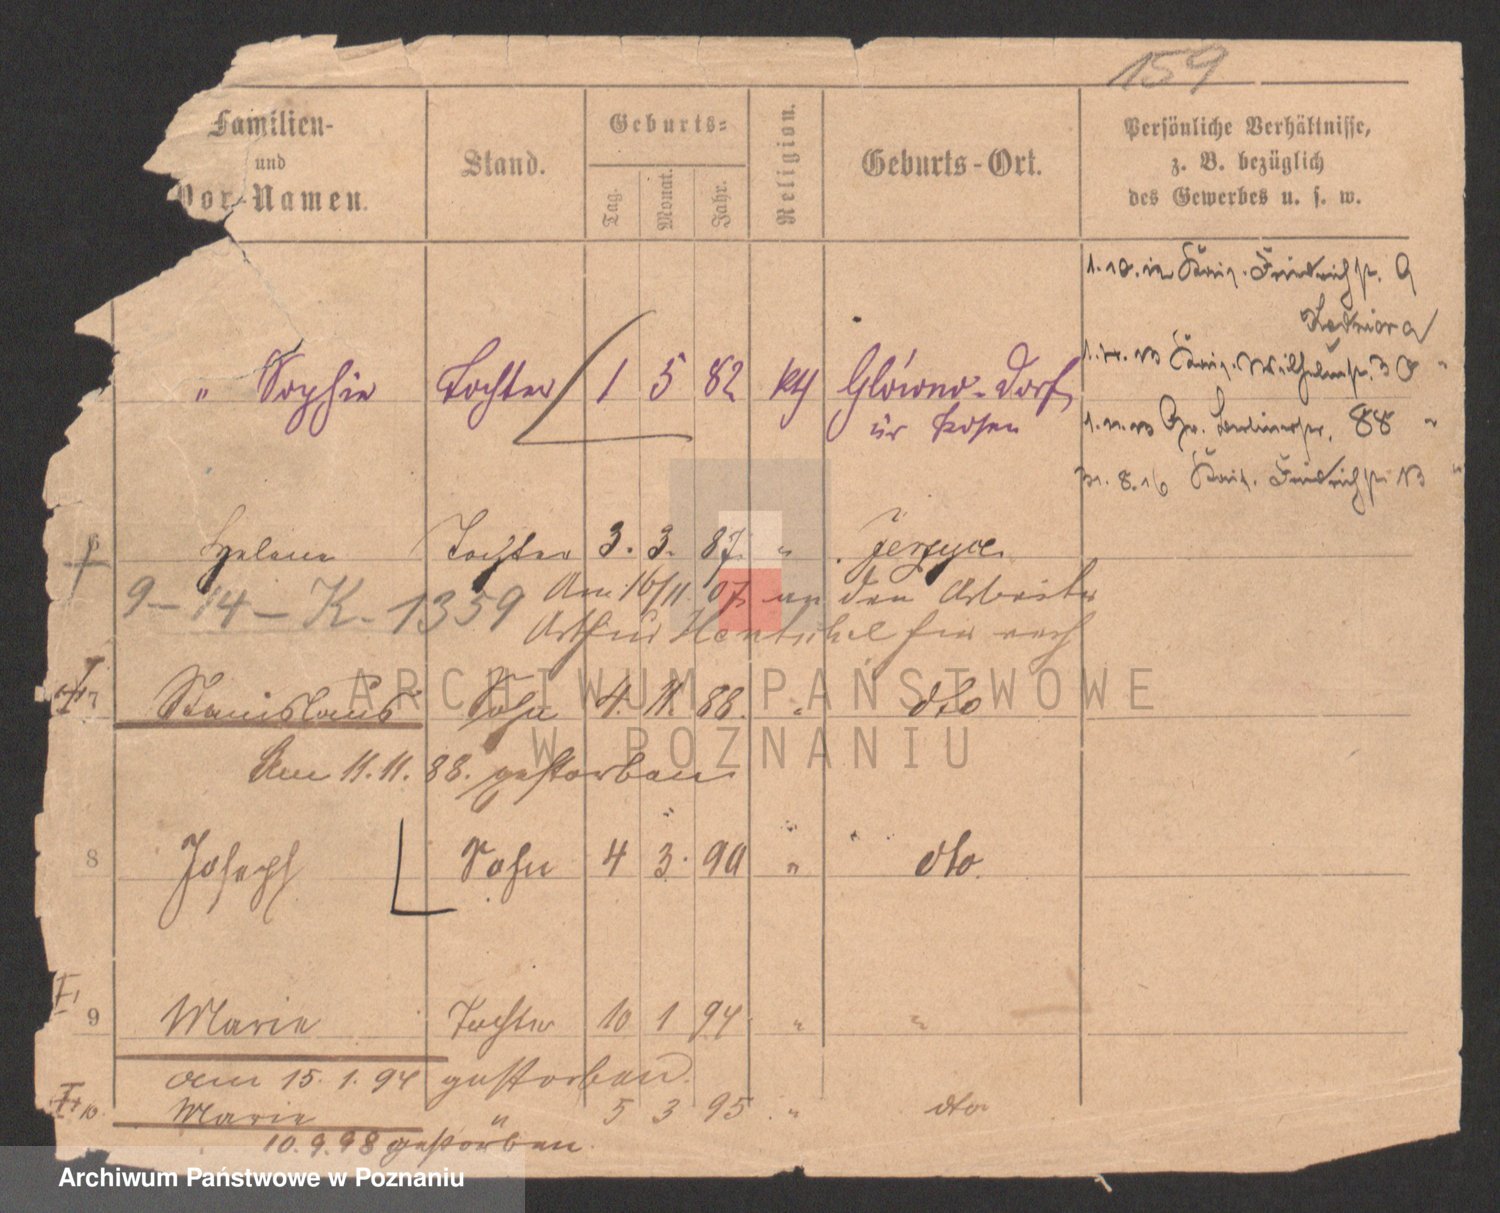 159
Familien-
und
Vor-Namen.
Stand.
Geburts-
Tag.
Monat.
Jahr.
Religion.
Geburts-Ort.
Persönliche Verhältnisse,
z. B. bezüglich
des Gewerbes u. s. w.
Friedrichstr. 9
„ Sophie Tochter 1 5 82 Glowno-Dorf
Wilhelmstr. 30 "
bei Posen
88 "
31. 8. 16 Friedrichstr. 13 "
6 Helene Tochter 3. 3. 87. " Jerzyce
9-14-K-1359 Am 16/11 07 an den Arbeiter
Arthur Hentschel
7 Stanislaus Sohn 4. 11. 88. " dto
Am 11.11.88. gestorben
8 Joseph Sohn 4 3. 90 " dto.
9 Marie Tochter 10 1 94 " "
am 15.1.94 gestorben.
10 Marie " 5 3 95 " dto
10.9.98 gestorben.
ARCHIWUM PAŃSTWOWE
W POZNANIU
Archiwum Państwowe w Poznaniu